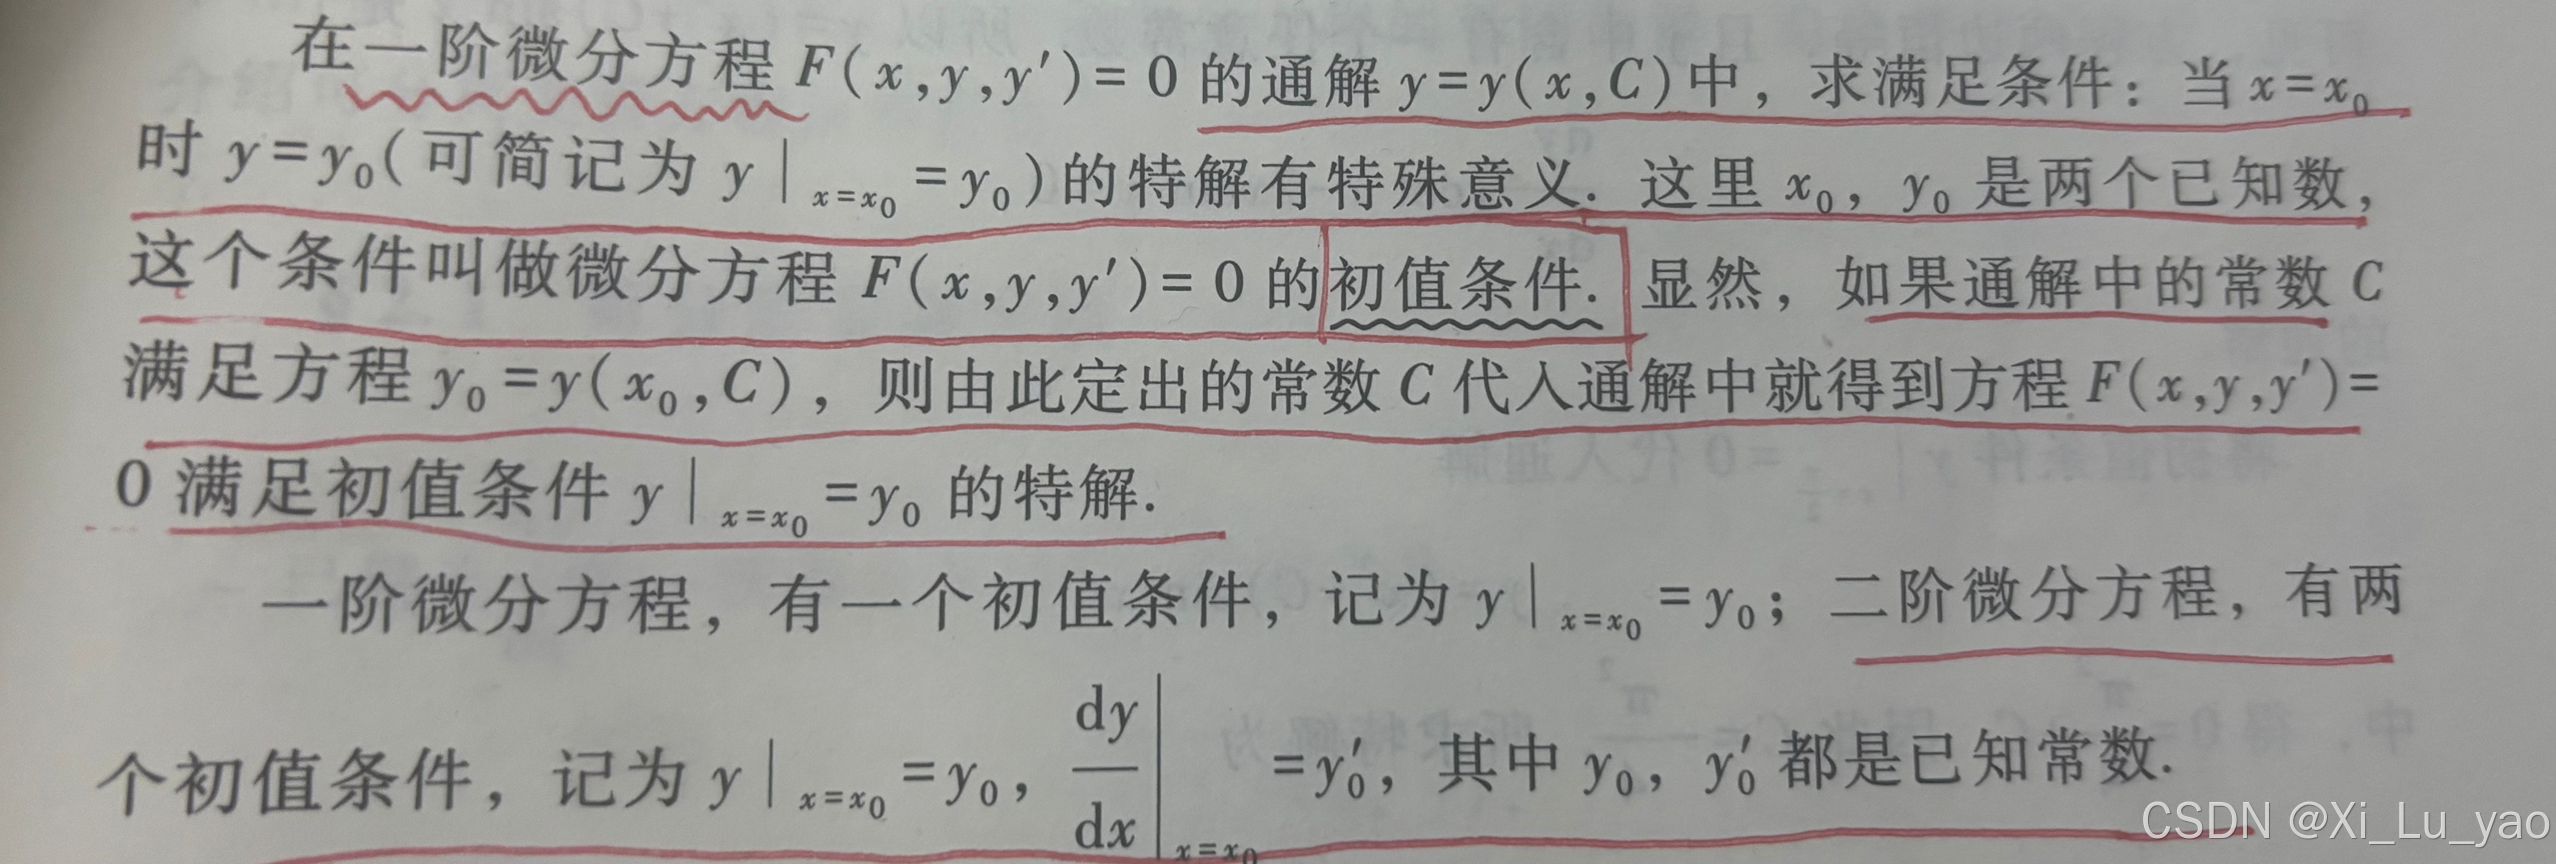 在一阶微分方程 F(x,y,y′)=0 的通解 y=y(x,C)中，求满足条件：当 x=x₀
时 y=y₀(可简记为 y|ₓ₌ₓ₀=y₀)的特解有特殊意义. 这里 x₀，y₀ 是两个已知数，
这个条件叫做微分方程 F(x,y,y′)=0 的初值条件. 显然，如果通解中的常数 C
满足方程 y₀=y(x₀,C)，则由此定出的常数 C 代入通解中就得到方程 F(x,y,y′)=
0 满足初值条件 y|ₓ₌ₓ₀=y₀ 的特解.
一阶微分方程，有一个初值条件，记为 y|ₓ₌ₓ₀=y₀；二阶微分方程，有两
个初值条件，记为 y|ₓ₌ₓ₀=y₀，dy/dx|ₓ₌ₓ₀=y₀′，其中 y₀，y₀′都是已知常数.
CSDN @Xi_Lu_yao